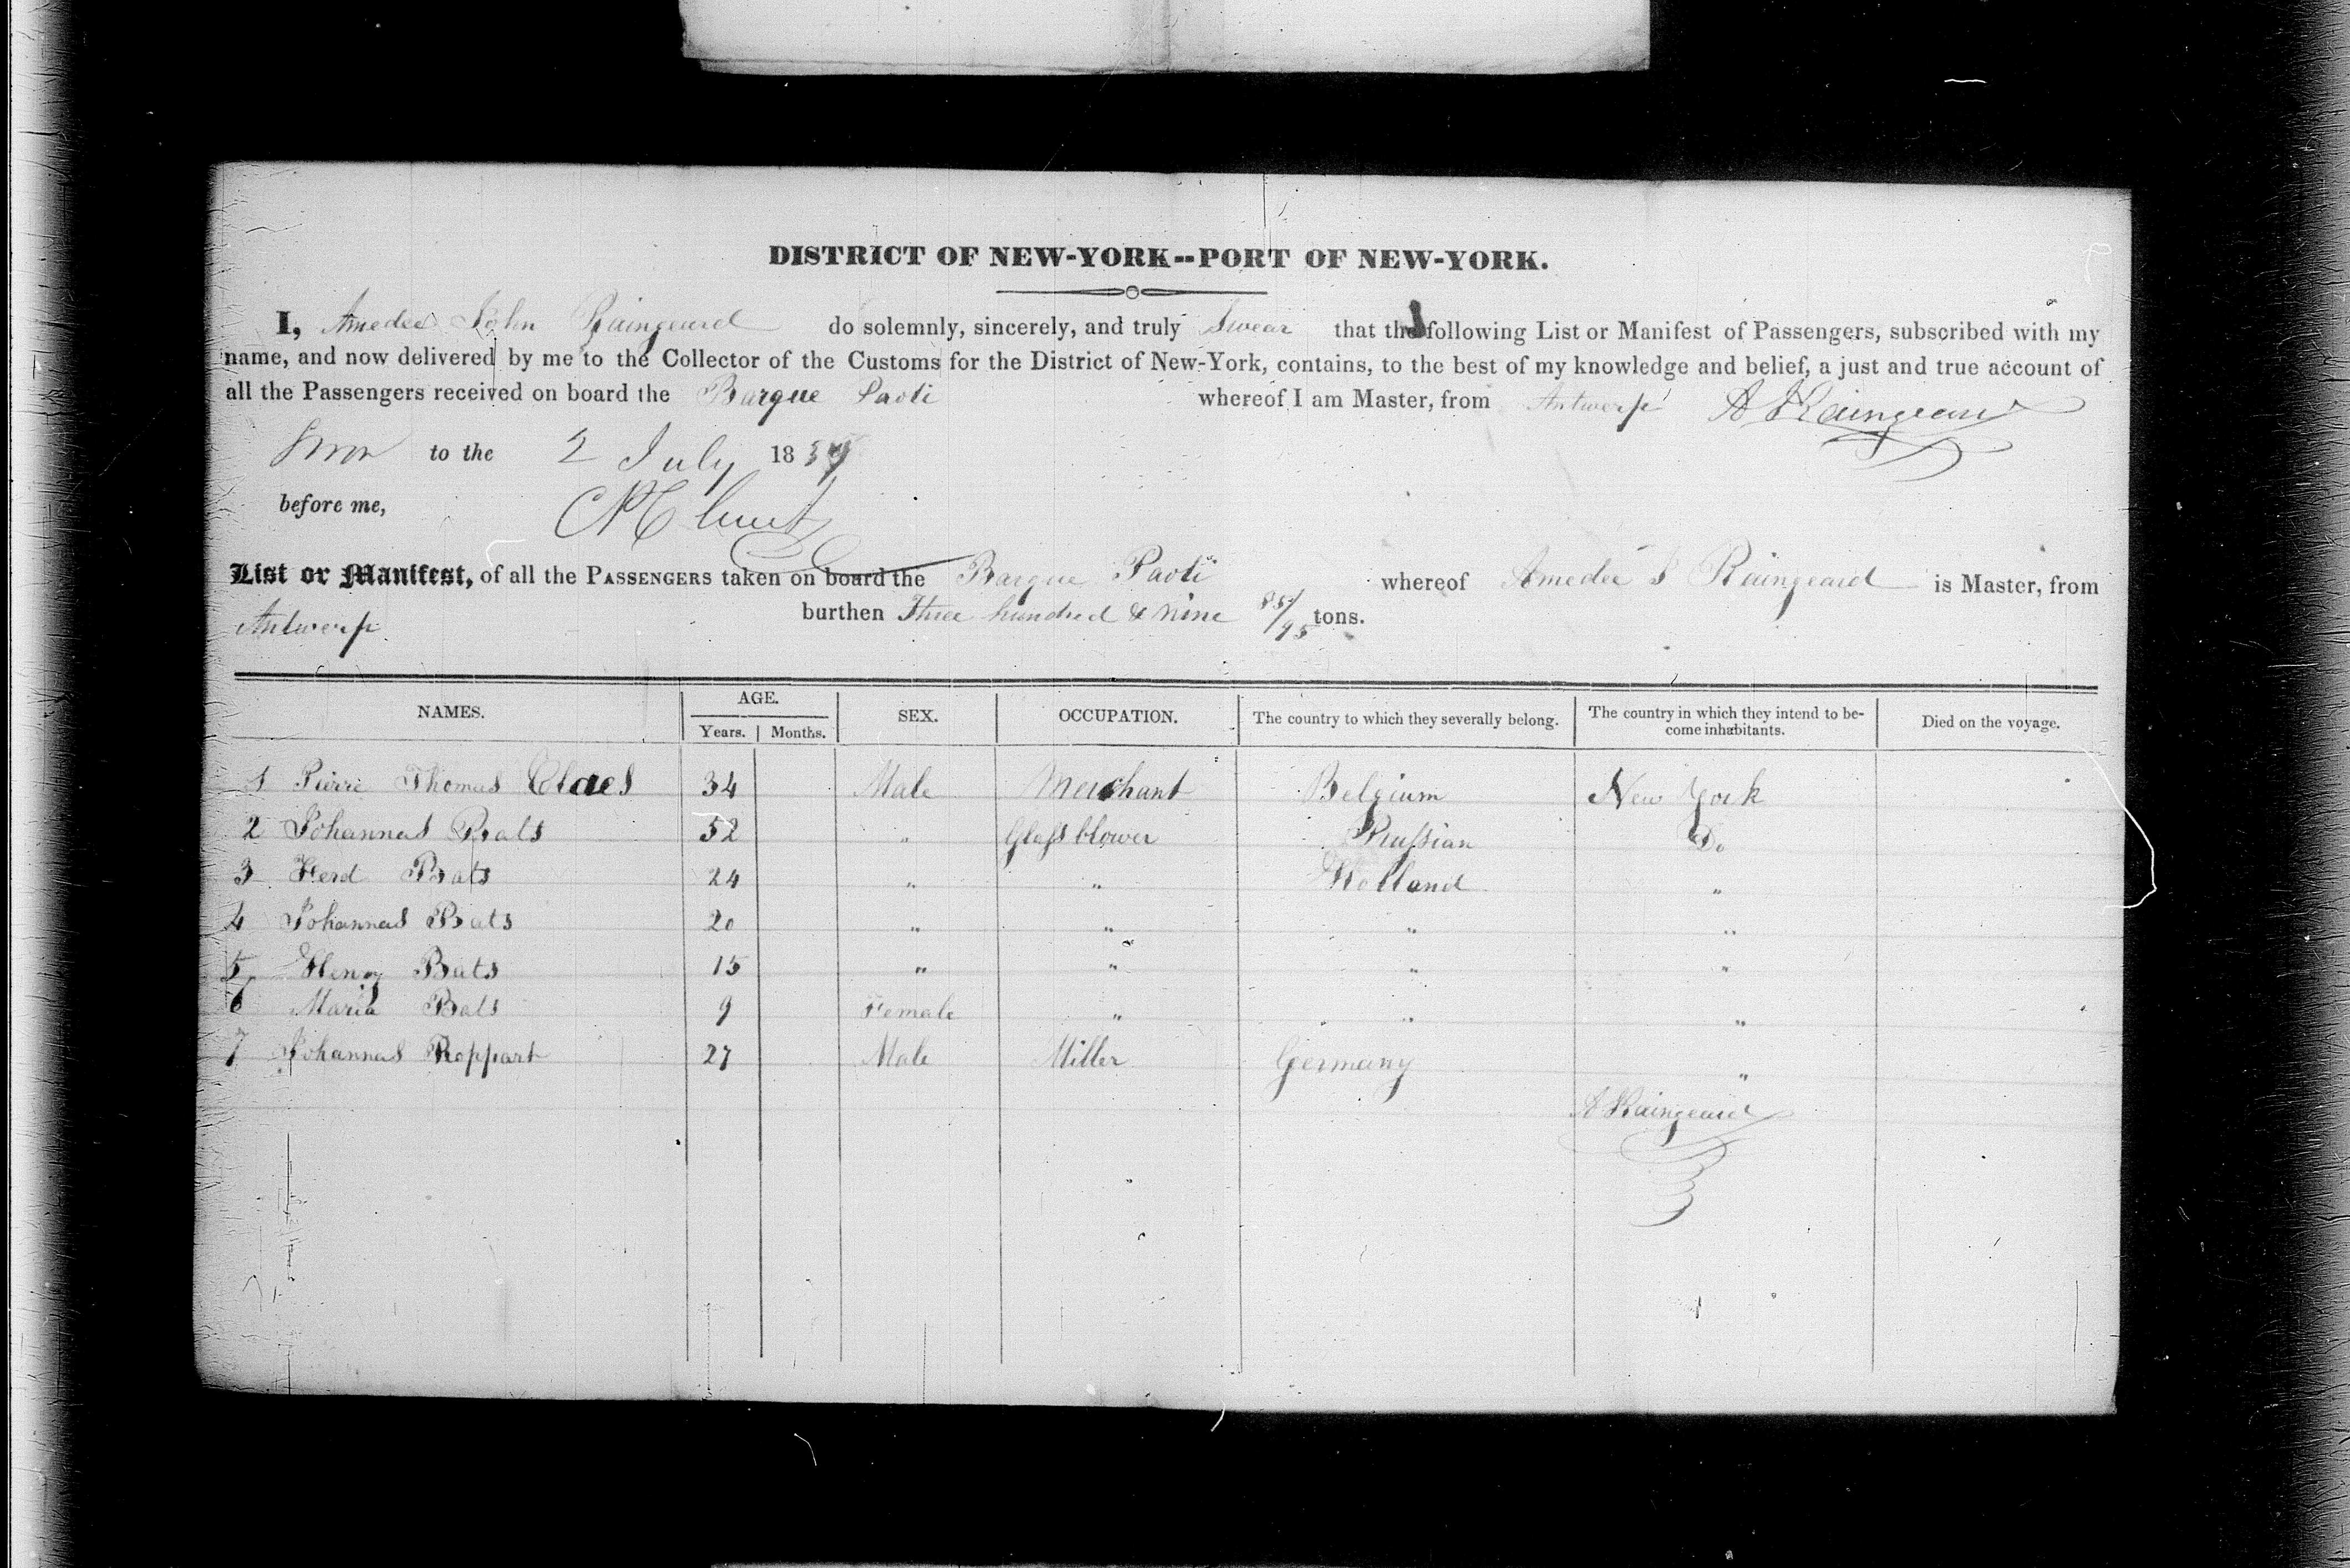 DISTRICT OF NEW-YORK--PORT OF NEW-YORK.
I, Amedee John Raingeard do solemnly, sincerely, and truly Swear that the following List or Manifest of Passengers, subscribed with my
name, and now delivered by me to the Collector of the Customs for the District of New-York, contains, to the best of my knowledge and belief, a just and true account of
all the Passengers received on board the Barque Paoli whereof I am Master, from Antwerp A Raingeard
to the 2 July 18
before me,
List or Manifest, of all the PASSENGERS taken on board the Barque Paoli whereof Amedee J Raingeard is Master, from
Antwerp burthen Three hundred & nine 85/95 tons.
NAMES. AGE. SEX. OCCUPATION. The country to which they severally belong. The country in which they intend to be- Died on the voyage.
Years. Months. come inhabitants.
1 Pierre Thomas Claes 34 Male Merchant Belgium New York
2 Johannes Bats 52 " Glass blower Prussian Do
3 Ferd Bats 24 " " Holland "
4 Johannes Bats 20 " " " "
5 Henry Bats 15 " " " "
6 Maria Bats 9 Female " " "
7 Johannes Roppart 27 Male Miller Germany "
A Raingeard